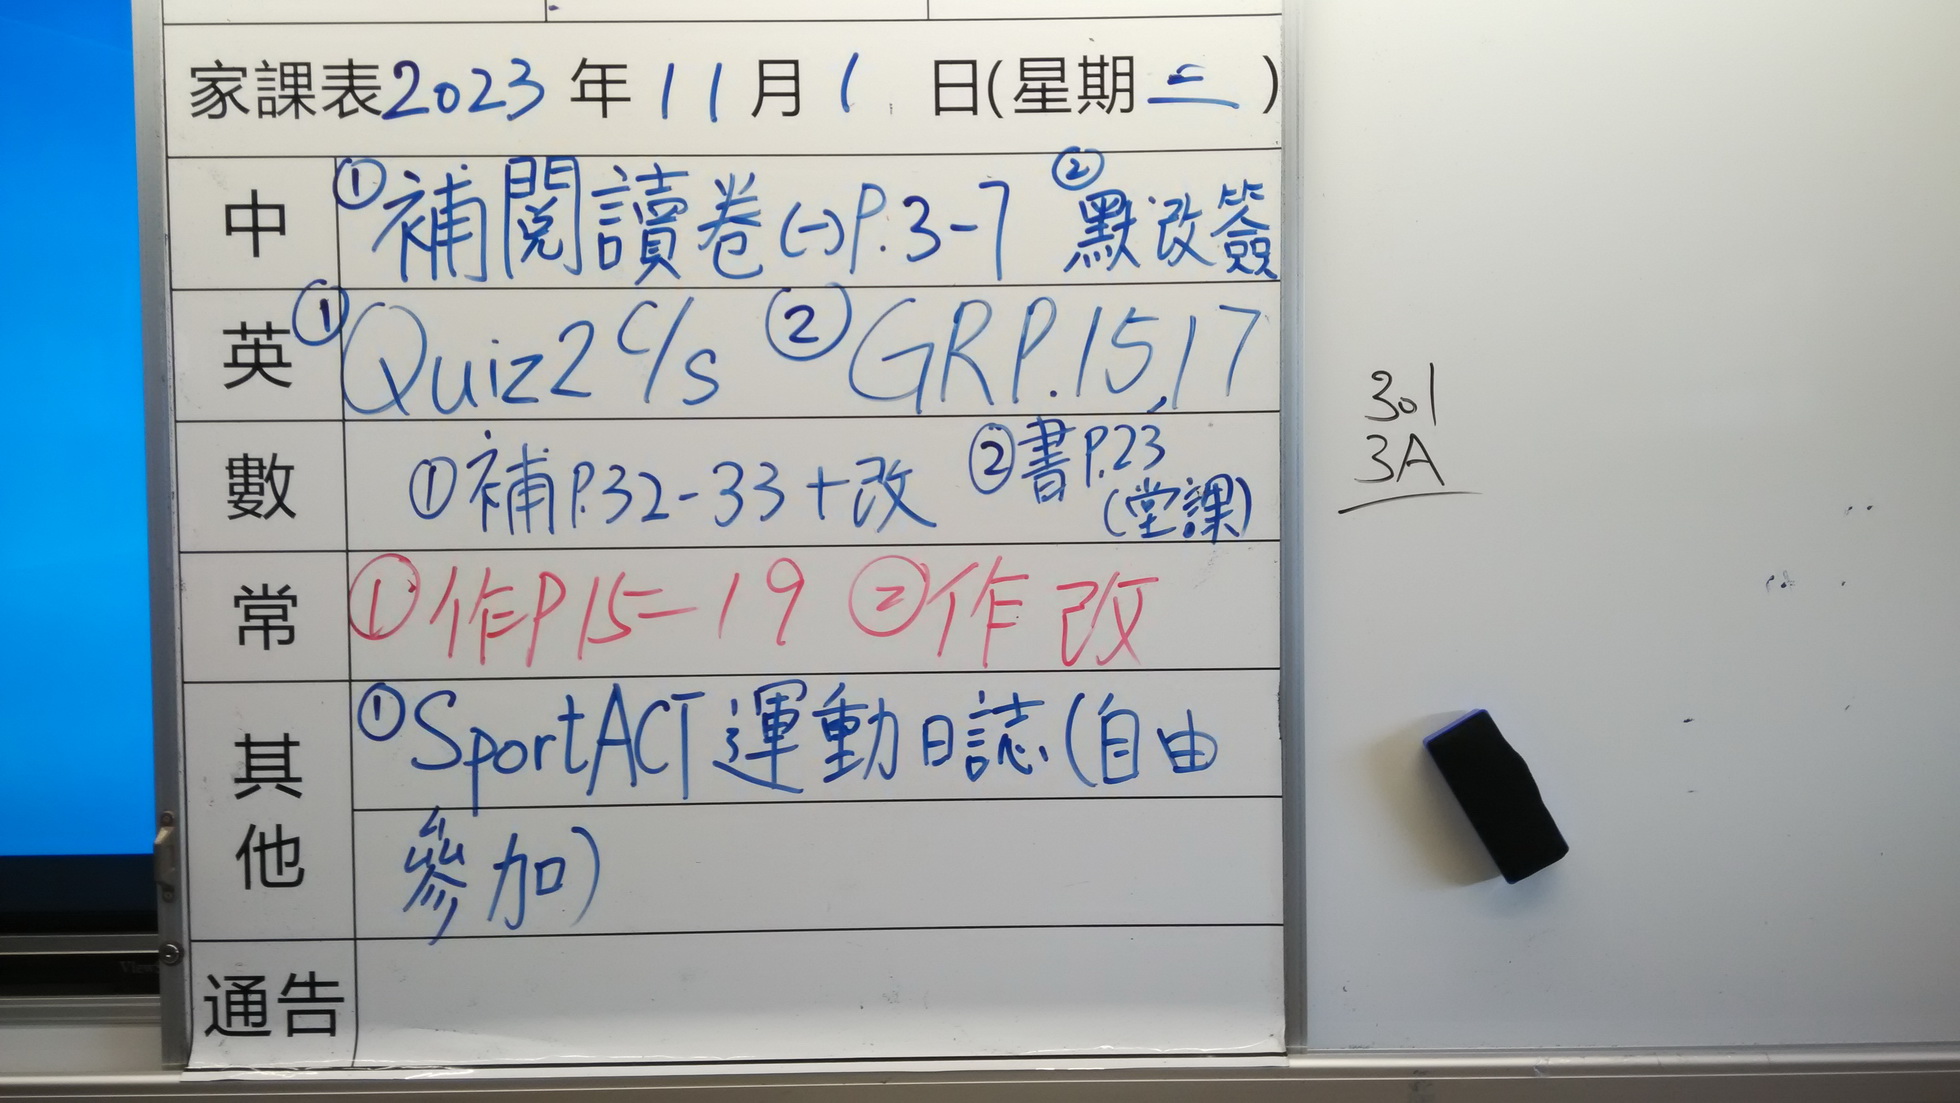 家課表2023年11月1日(星期三)
中 ①補閱讀卷(一)P.3-7 ②默改簽
英 ①Quiz2 c/s ②GRP.15,17
數 ①補P.32-33+改 ②書P.23
(堂課)
常 ①作P15-19 ②作改
其他 ①SportACT運動日誌(自由
參加)
通告
301
3A